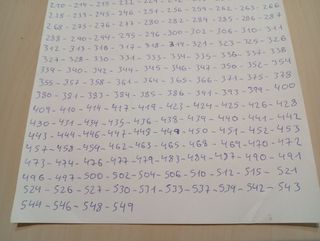 210 - 214 - 215 - 221
228 - 233 - 245 - 246 - 251 - 256 - 259 - 262 - 263 - 266
268 - 273 - 276 - 277 - 280 - 282 - 284 - 285 - 286 - 287
288 - 290 - 294 - 295 - 296 - 300 - 302 - 306 - 310 - 311
312 - 313 - 316 - 317 - 318 - 319 - 321 - 323 - 325 - 326
327 - 328 - 330 - 331 - 333 - 334 - 335 - 336 - 337 - 338
339 - 340 - 342 - 344 - 345 - 346 - 347 - 350 - 352 - 354
355 - 357 - 358 - 361 - 364 - 365 - 366 - 371 - 375 - 378
380 - 381 - 383 - 384 - 385 - 386 - 391 - 393 - 399 - 400
409 - 410 - 414 - 417 - 419 - 423 - 424 - 425 - 426 - 428
430 - 431 - 434 - 435 - 436 - 438 - 439 - 440 - 441 - 442
443 - 444 - 446 - 447 - 448 - 449 - 450 - 451 - 452 - 453
457 - 458 - 459 - 462 - 463 - 465 - 468 - 469 - 470 - 472
473 - 474 - 476 - 477 - 479 - 483 - 484 - 487 - 490 - 491
496 - 497 - 500 - 502 - 504 - 506 - 510 - 512 - 515 - 521
524 - 526 - 527 - 530 - 531 - 533 - 537 - 539 - 542 - 543
544 - 546 - 548 - 549